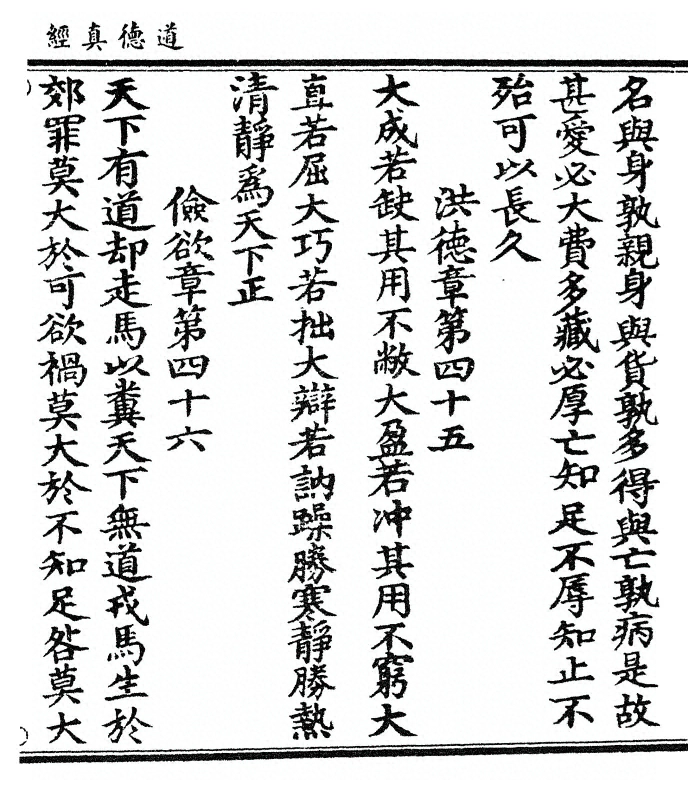 道德真經
名與身孰親身與貨孰多得與亡孰病是故
甚愛必大費多藏必厚亡知足不辱知止不
殆可以長久
洪德章第四十五
大成若缺其用不敝大盈若冲其用不窮大
直若屈大巧若拙大辯若訥躁勝寒靜勝熱
清靜爲天下正
儉欲章第四十六
天下有道却走馬以糞天下無道戎馬生於
郊罪莫大於可欲禍莫大於不知足咎莫大